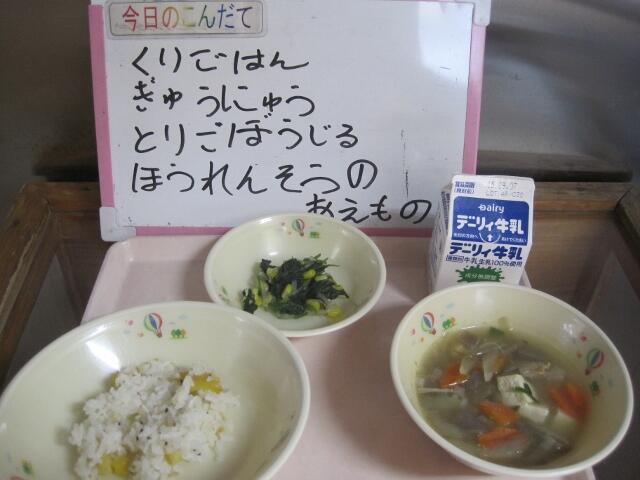 今日のこんだて
くりごはん
ぎゅうにゅう
とりごぼうじる
ほうれんそうの
あえもの
Dairy
デーリィ牛乳
デーリィ牛乳
牛乳 生乳100%使用
成分無調整